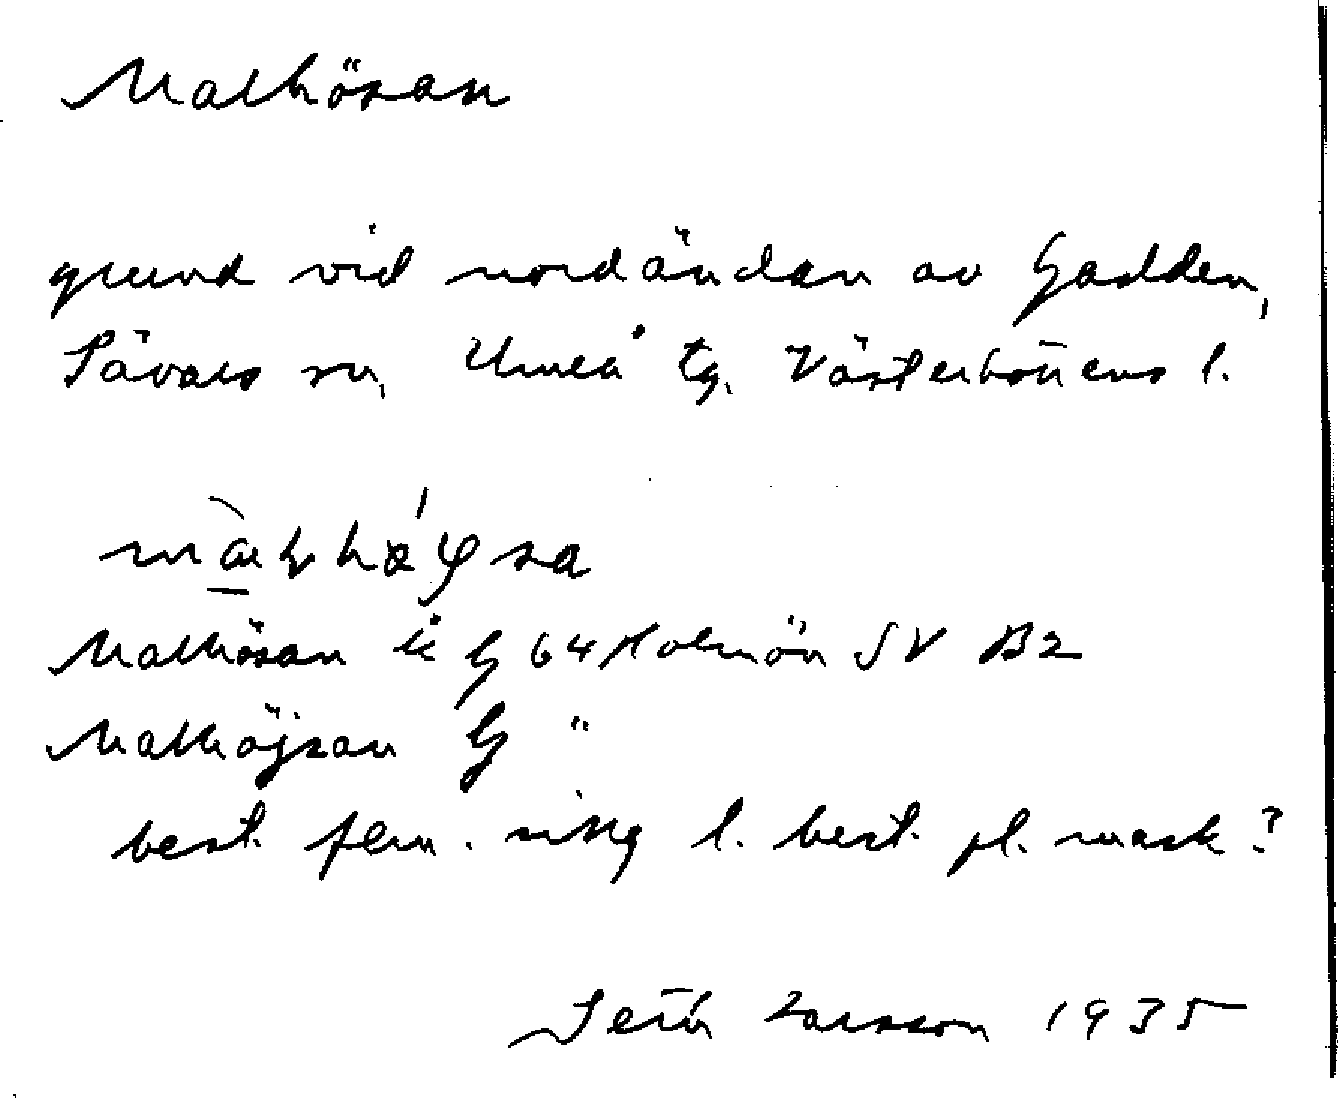 Malhösan
grund vid nordändan av Gadden,
Sävars sn, Umeå tg. Västerbottens l.
Malhösan G 64 Holmön SV B2
Malhöjsan G "
best. fem. sing l. best. pl. mask ?
Seth Larsson 1935